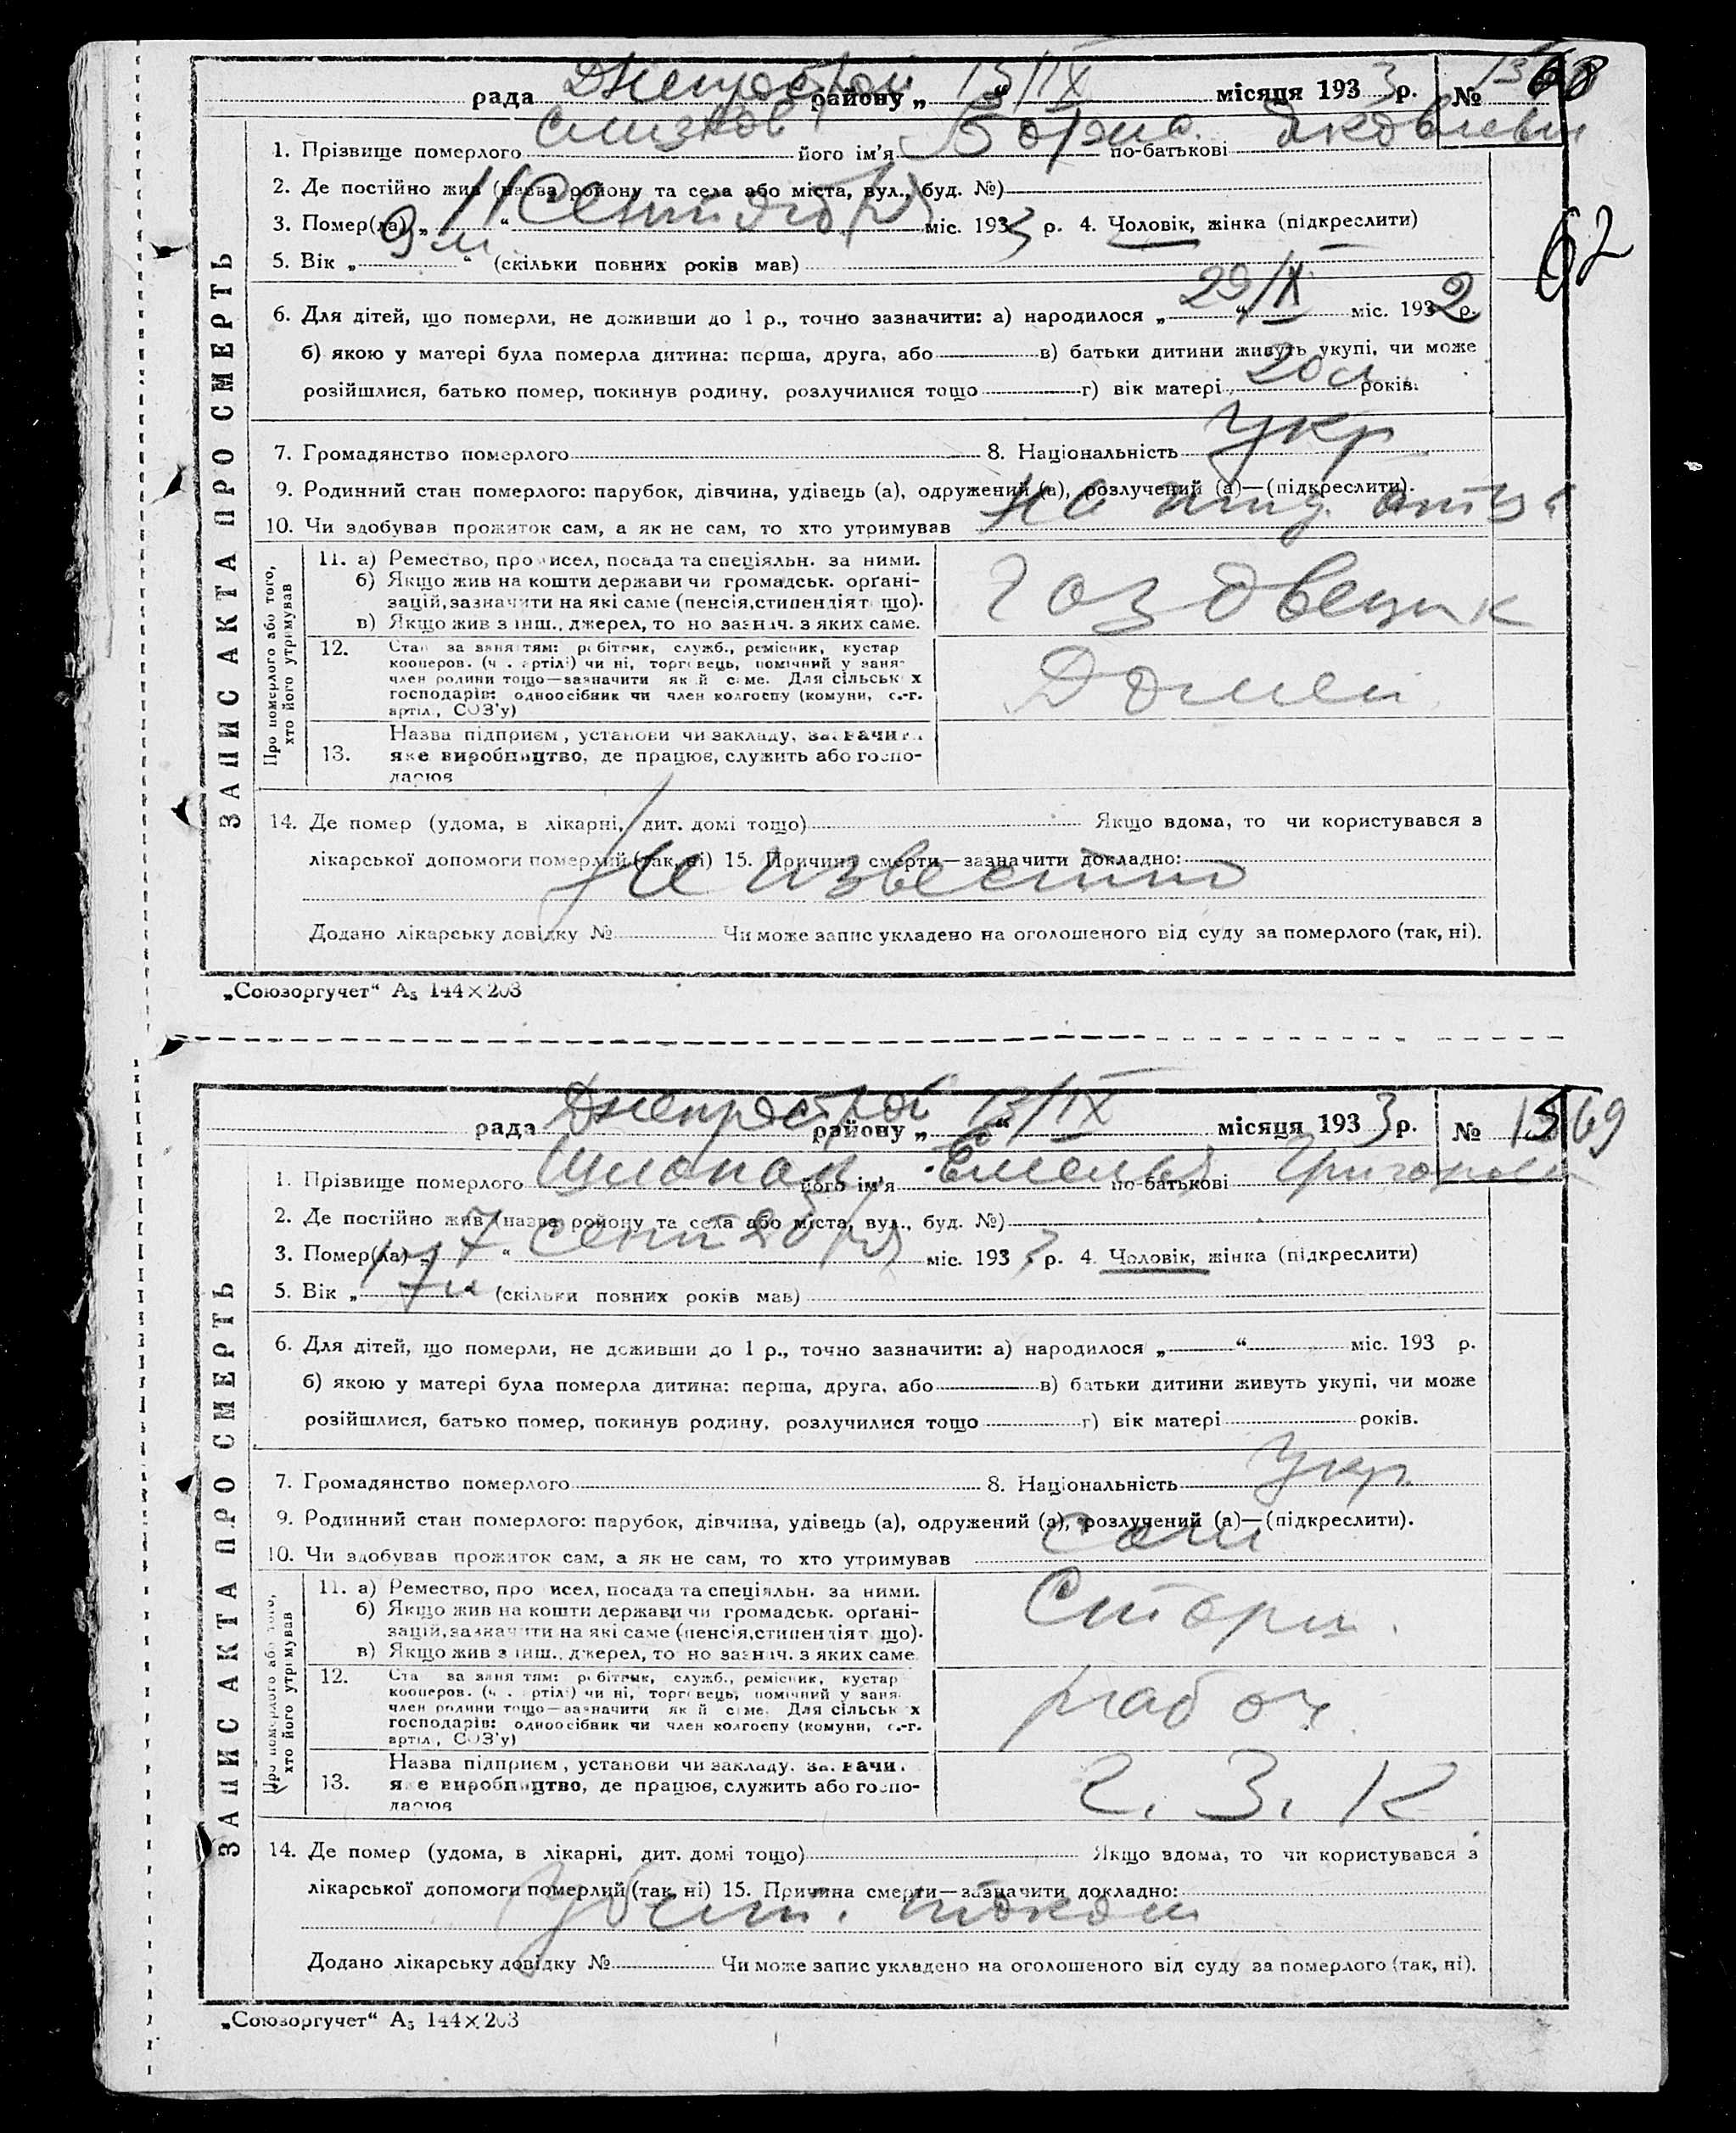 ЗАПИС АКТА ПРО СМЕРТЬ
рада Днепрострой району „ 13/IX “ місяця 1933 р. № 1568
1. Прізвище померлого його ім'я Борис по-батькові Яковлевич
62
2. Де постійно жив (назва ройону та села або міста, вул., буд. №)
3. Помер(ла) „ 11 “ Сентября міс. 1933 р. 4. Чоловік, жінка (підкреслити)
5. Вік „ 9 м. “ (скільки повних років мав)
6. Для дітей, що померли, не доживши до 1 р., точно зазначити: а) народилося „ 29/IX “ міс. 1932 р.
б) якою у матері була померла дитина: перша, друга, або в) батьки дитини живуть укупі, чи може
розійшлися, батько помер, покинув родину, розлучилися тощо г) вік матері 20 л років.
7. Громадянство померлого 8. Національність Укр
9. Родинний стан померлого: парубок, дівчина, удівець (а), одружений (а), розлучений (а)—(підкреслити).
10. Чи здобував прожиток сам, а як не сам, то хто утримував На ижд. отца
Про померлого або того, хто його утримував
11. а) Ремество, промисел, посада та спеціяльн. за ними.
б) Якщо жив на кошти держави чи громадськ. орґані-
зацій, зазначити на які саме (пенсія, стипендія т що).
в) Якщо жив з інш. джерел, то но зазнач. з яких саме.
Газовщик
12. Стан за заняттям: робітник, служб., ремісник, кустар
кооперов. (ч. артілі) чи ні, торговець, помічний у заня-
член родини тощо—зазначити який саме. Для сільських
господарів: одноосібник чи член колгоспу (комуни, с.-г.
артіл., СОЗ'у)
Домен
13. Назва підприєм., установи чи закладу, зазначити
яке виробництво, де працює, служить або госпо-
дарює
14. Де помер (удома, в лікарні, дит. домі тощо) Якщо вдома, то чи користувався з
лікарської допомоги померлий (так, ні) 15. Причина смерти—зазначити докладно:
Не известно
Додано лікарську довідку № Чи може запис укладено на оголошеного від суду за померлого (так, ні).
„Союзоргучет“ А5 144×203
ЗАПИС АКТА ПРО СМЕРТЬ
рада Днепрострой району „ 13/IX “ місяця 1933 р. № 1569
1. Прізвище померлого його ім'я Емельян по-батькові Григорьев
2. Де постійно жив (назва ройону та села або міста, вул., буд. №)
3. Помер(ла) „ 7 “ сентября міс. 1933 р. 4. Чоловік, жінка (підкреслити)
5. Вік „ “ (скільки повних років мав)
6. Для дітей, що померли, не доживши до 1 р., точно зазначити: а) народилося „ “ міс. 193 р.
б) якою у матері була померла дитина: перша, друга, або в) батьки дитини живуть укупі, чи може
розійшлися, батько помер, покинув родину, розлучилися тощо г) вік матері років.
7. Громадянство померлого 8. Національність Укр.
9. Родинний стан померлого: парубок, дівчина, удівець (а), одружений (а), розлучений (а)—(підкреслити).
10. Чи здобував прожиток сам, а як не сам, то хто утримував Сам
Про померлого або того, хто його утримував
11. а) Ремество, промисел, посада та спеціяльн. за ними.
б) Якщо жив на кошти держави чи громадськ. орґані-
зацій, зазначити на які саме (пенсія, стипендія т що).
в) Якщо жив з інш. джерел, то но зазнач. з яких саме
12. Стан за заняттям: робітник, служб., ремісник, кустар
кооперов. (ч. артілі) чи ні, торговець, помічний у заня-
член родини тощо—зазначити який саме. Для сільських
господарів: одноосібник чи член колгоспу (комуни, с.-г.
артіл., СОЗ'у)
рабоч.
13. Назва підприєм., установи чи закладу, зазначити
яке виробництво, де працює, служить або госпо-
дарює
2. 3. К
14. Де помер (удома, в лікарні, дит. домі тощо) Якщо вдома, то чи користувався з
лікарської допомоги померлий (так, ні) 15. Причина смерти—зазначити докладно:
Убит. током
Додано лікарську довідку № Чи може запис укладено на оголошеного від суду за померлого (так, ні).
„Союзоргучет“ А5 144×203